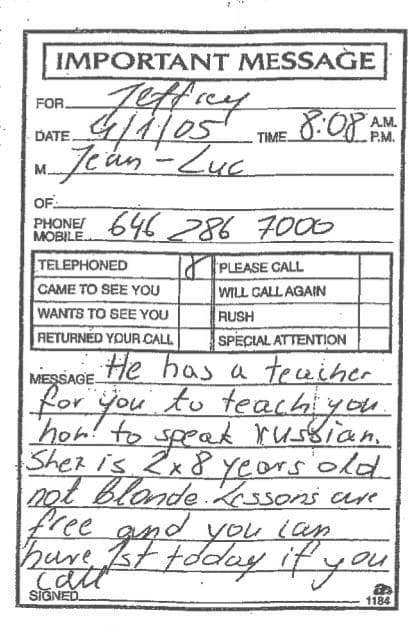 IMPORTANT MESSAGE
FOR Jeffrey
DATE 4/1/05 TIME 8:08 A.M. P.M.
M Jean-Luc
OF
PHONE/MOBILE 646 286 7000
TELEPHONED PLEASE CALL
CAME TO SEE YOU WILL CALL AGAIN
WANTS TO SEE YOU RUSH
RETURNED YOUR CALL SPECIAL ATTENTION
MESSAGE He has a teacher
for you to teach you
how to speak russian.
She is 2x8 years old
not blonde. Lessons are
free and you can
have 1st today if you
call
SIGNED
1184